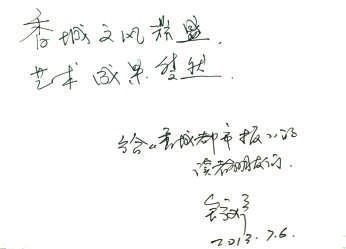 香城文风最盛,
艺术成果斐然.
给《香城都市报》的
读者朋友们.
2013.7.6.